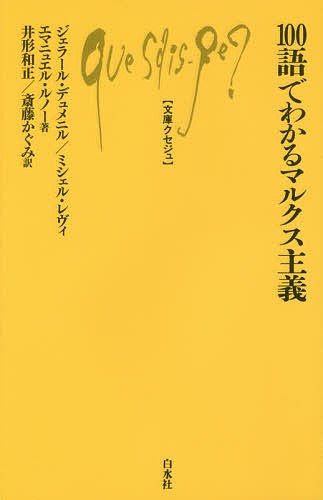 100語でわかるマルクス主義
Que sais-je?
【文庫クセジュ】
ジェラール・デュメニル／ミシェル・レヴィ
エマニュエル・ルノー著
井形和正／斎藤かぐみ訳
白水社